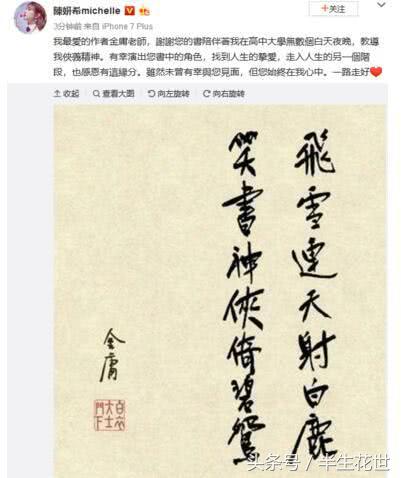 陳妍希michelle
+关注
3分钟前 来自 iPhone 7 Plus
我最愛的作者金庸老師，謝謝您的書陪伴著我在高中大學無數個白天夜晚，教導
我俠義精神。有幸演出您書中的角色，找到人生的摯愛，走入人生的另一個階
段，也感恩有這緣分。雖然未曾有幸與您見面，但您始終在我心中。一路走好❤
收起 查看大图 向左旋转 向右旋转
飛雪連天射白鹿
笑書神俠倚碧鴛
金庸
头条号／半生花世